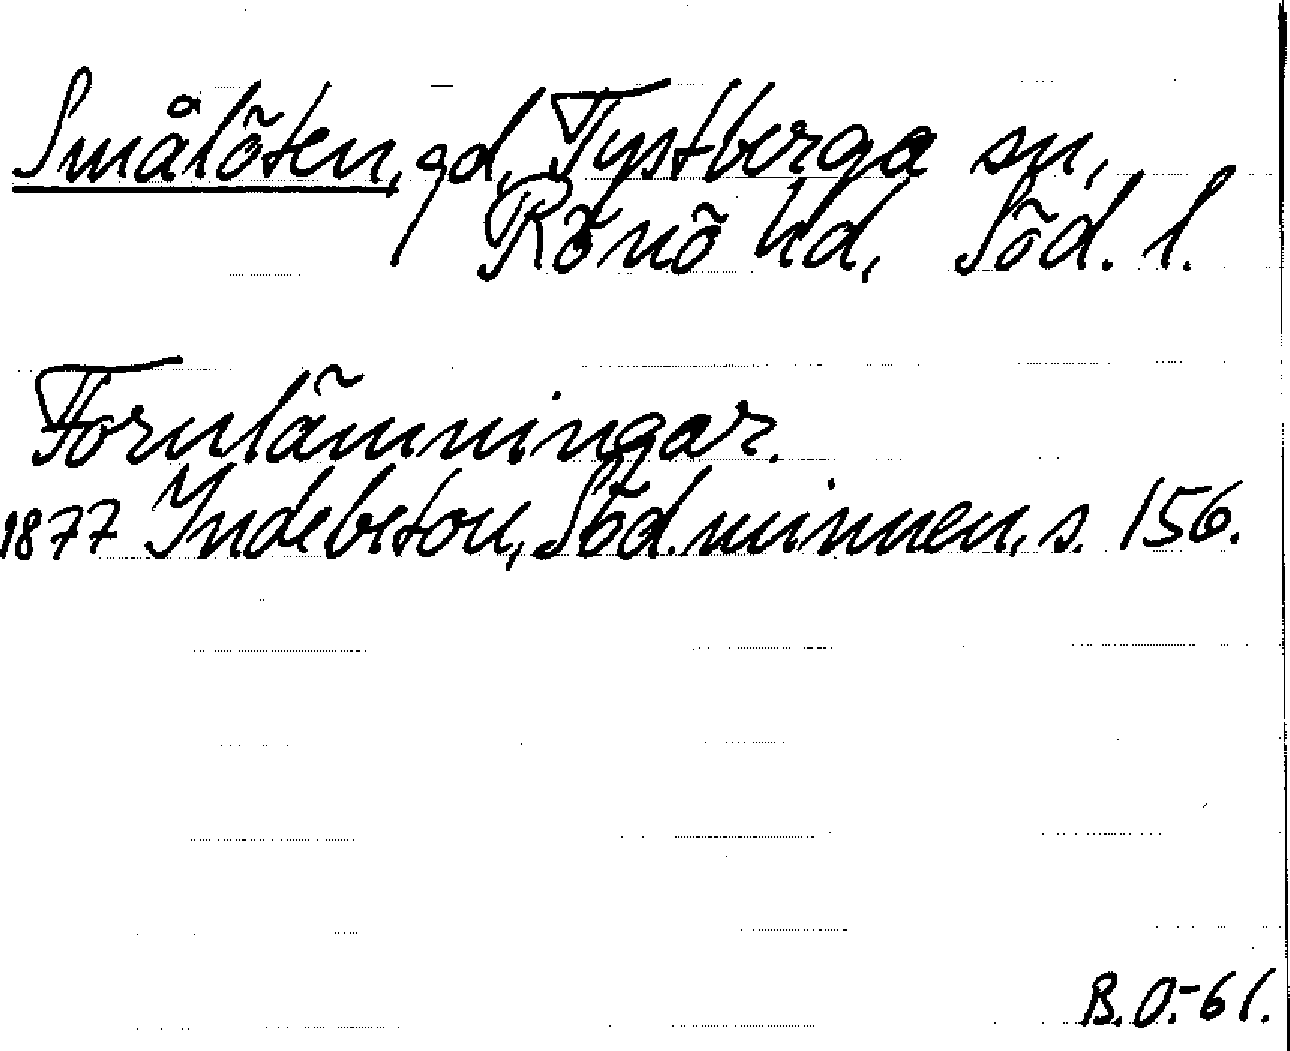 Smålöten, gd, Tystberga sn,
Rönö hd, Söd. l.
Fornlämningar.
1877 Indebetou, Söd.minnen, s. 156.
B.O.-61.